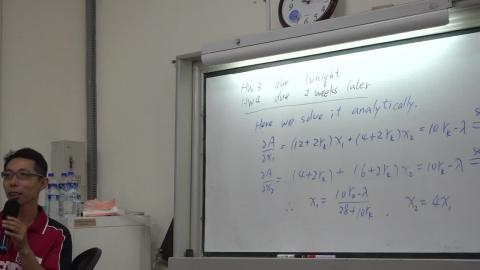 HW3 due tonight
HW4 due 2 weeks later
Here we solve it analytically.
∂A/∂x₁ = (12+2rₖ)x₁ + (4+2rₖ)x₂ = 10rₖ-λ
∂A/∂x₂ = (4+2rₖ) + (6+2rₖ)x₂ = 10rₖ-λ
∴ x₁ = (10rₖ-λ)/(28+10rₖ) . x₂ = 4x₁